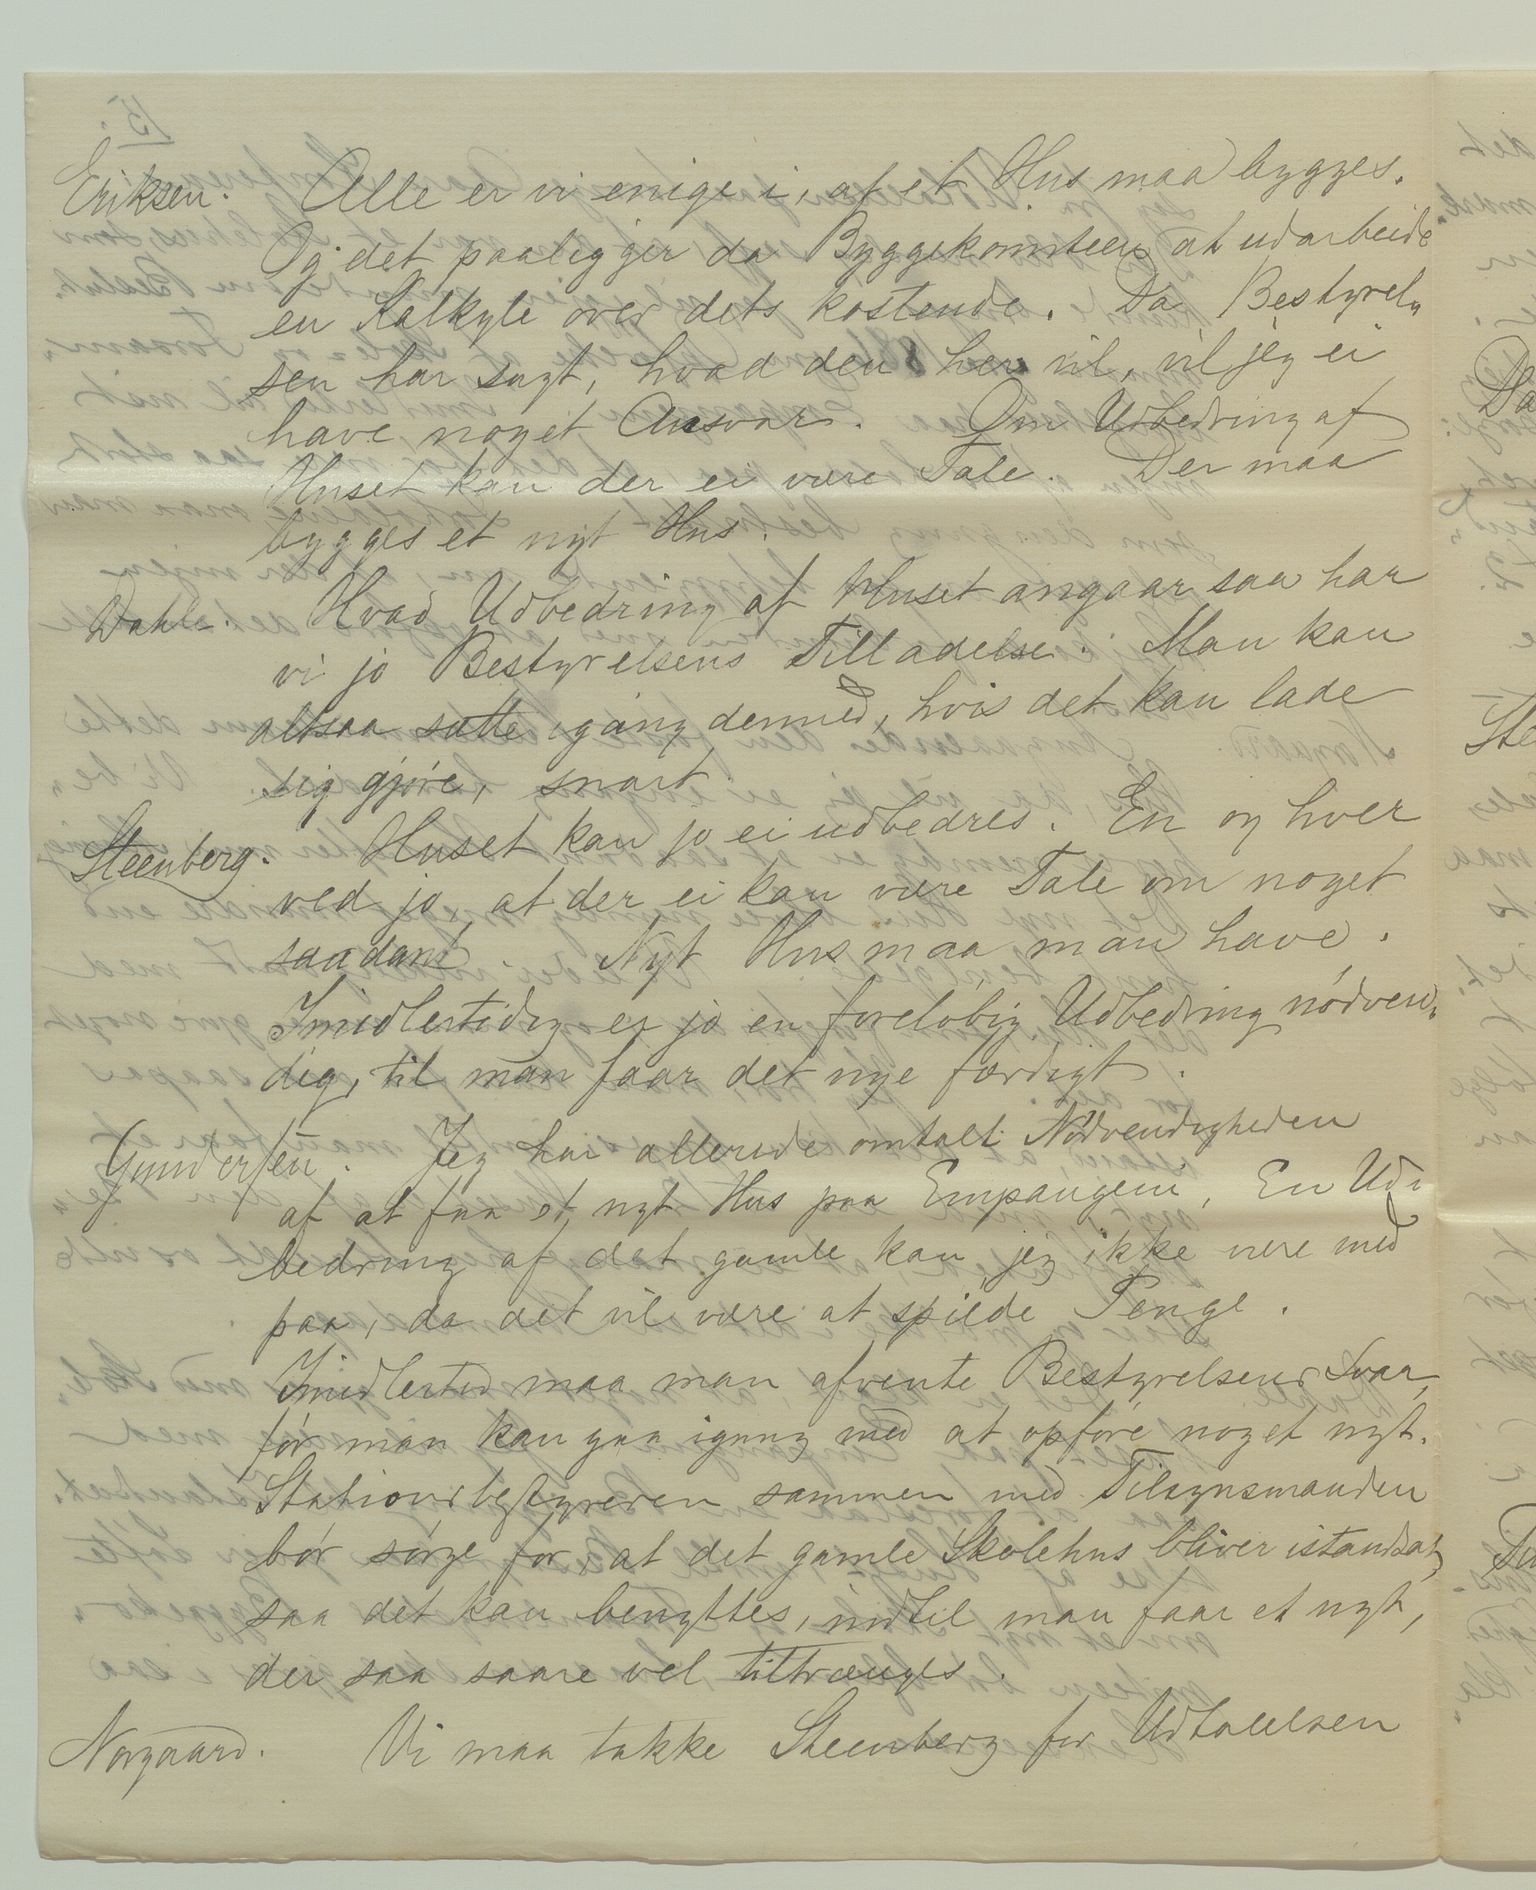 Eriksen. Alle er vi enige i, at et Hus maa bygges.
Og det paaligger da Byggekomiteen at udarbeide
en Kalkyle over dets kostende. Da Bestyrel„
sen har sagt, hvad den her vil, vil jeg ei
have noget Ansvar. Om Udbedring af
Huset kan der ei være Tale. Der maa
bygges et nyt Hus.
Dahle. Hvad Udbedring af Huset angaar saa har
vi jo Bestyrelsens Tilladelse. Man kan
altsaa sætte igang dermed, hvis det kan lade
sig gjøre, snart.
Steenberg. Huset kan jo ei udbedres. En og hver
ved jo at der ei kan være Tale om noget
saadant. Nyt Hus maa man have.
Imidlertidig er jo en foreløbig Udbedring nødven„
dig, til man faar det nye færdigt.
Gundersen. Jeg har allerede omtalt Nødvendigheden
af at faa et nyt Hus paa Empangeni. En Ud„
bedring af det gamle kan jeg ikke være med
paa, da det vil være at spilde Penge.
Imidlertid maa man afvente Bestyrelsens Svar,
før man kan gaa igang med at opføre noget nyt.
Stationsbestyreren sammen med Tilsynsmanden
bør sørge for, at det gamle Skolehus bliver istandsat,
saa det kan benyttes, indtil man faar et nyt,
der saa saare vel tiltrænges.
Norgaard. Vi maa takke Steenberg for Udtalelsen